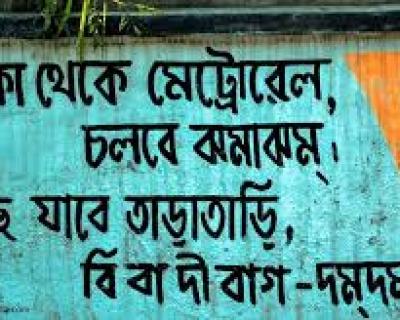 থেকে মেট্রোরেল,
চলবে ঝমাঝম্।
যাবে তাড়াতাড়ি,
বি বা দী বাগ - দম্‌দম